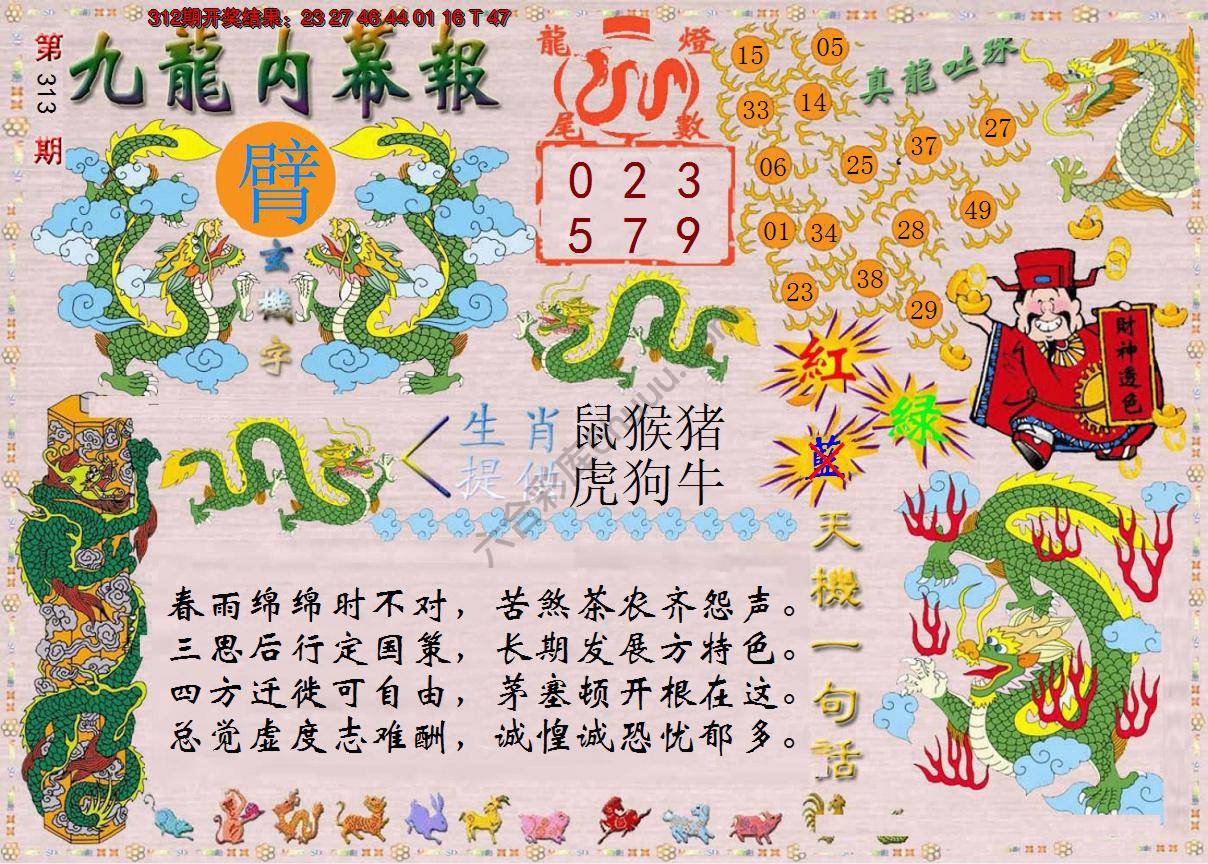 312期开奖结果：23 27 46 44 01 16 T 47
第313期
九龍内幕報
臂
玄機字
龍燈
尾數
0 2 3
5 7 9
真龍吐珠
15 05
33 14
06 25 37 27
01 34 28 49
23 38 29
財神透色
紅
綠
藍
生肖 鼠猴猪
提供 虎狗牛
春雨绵绵时不对，苦煞茶农齐怨声。
三思后行定国策，长期发展方特色。
四方迁徙可自由，茅塞顿开根在这。
总觉虚度志难酬，诚惶诚恐忧郁多。
天機一句話